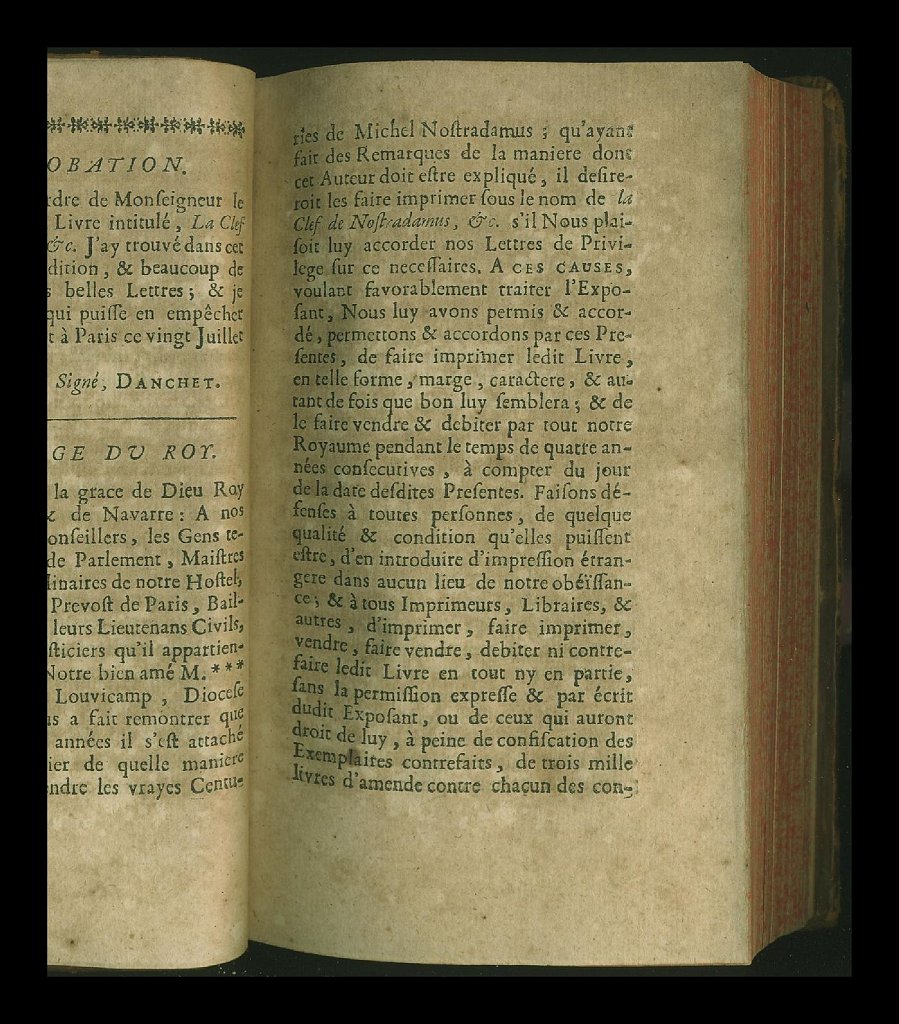 OBATION.
rdre de Monſeigneur le
Livre intitulé, La Clef
&c. J'ay trouvé dans cet
dition, & beaucoup de
s belles Lettres; & je
qui puiſſe en empêcher
t à Paris ce vingt Juillet
Signé, DANCHET.
GE DU ROY.
la grace de Dieu Roy
& de Navarre: A nos
onſeillers, les Gens te-
de Parlement, Maiſtres
linaires de notre Hoſtel,
Prevoſt de Paris, Bail-
leurs Lieutenans Civils,
ſticiers qu'il appartien-
Notre bien amé M.***
Louvicamp, Dioceſe
us a fait remontrer que
années il s'eſt attaché
ier de quelle maniere
endre les vrayes Centu-
ries de Michel Noſtradamus; qu'ayant
fait des Remarques de la maniere dont
cet Auteur doit eſtre expliqué, il deſire-
roit les faire imprimer ſous le nom de la
Clef de Noſtradamus, &c. s'il Nous plai-
ſoit luy accorder nos Lettres de Privi-
lege ſur ce neceſſaires. A CES CAUSES,
voulant favorablement traiter l'Expo-
ſant, Nous luy avons permis & accor-
dé, permettons & accordons par ces Pre-
ſentes, de faire imprimer ledit Livre,
en telle forme, marge, caractere, & au-
tant de fois que bon luy ſemblera; & de
le faire vendre & debiter par tout notre
Royaume pendant le temps de quatre an-
nées conſecutives, à compter du jour
de la date deſdites Preſentes. Faiſons dé-
fenſes à toutes perſonnes, de quelque
qualité & condition qu'elles puiſſent
eſtre, d'en introduire d'impreſſion étran-
gere dans aucun lieu de notre obéïſſan-
ce; & à tous Imprimeurs, Libraires, &
autres, d'imprimer, faire imprimer,
vendre, faire vendre, debiter ni contre-
faire ledit Livre en tout ny en partie,
ſans la permiſſion expreſſe & par écrit
dudit Expoſant, ou de ceux qui auront
droit de luy, à peine de confiſcation des
Exemplaires contrefaits, de trois mille
livres d'amende contre chaçun des con-